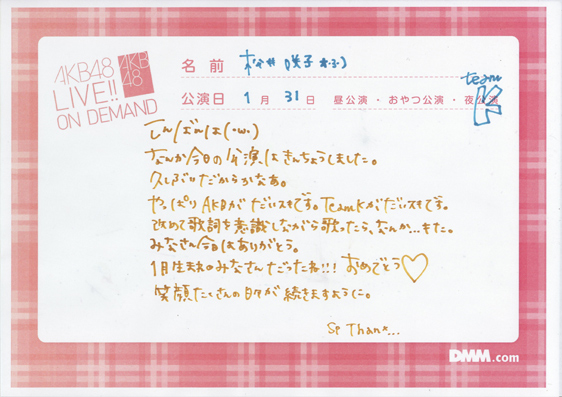 AKB48
LIVE!!
ON DEMAND
AKB
48
名前 松井 咲子
公演日 1月 31日 昼公演・おやつ公演・夜公演
team
K
こんばんは(·ω·)
なんか今日の公演はきんちょうしました。
久しぶりだからかなあ。
やっぱりAKBがだいスキです。TeamKがだいスキです。
改めて歌詞を意識しながら歌ったら、なんか...きた。
みなさん今日はありがとう。
1月生まれのみなさんだったね!!! おめでとう♡
笑顔たくさんの日々が続きますように。
Sp Thanx...
DMM.com